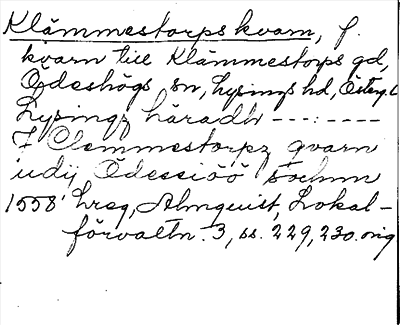 Klämmestorps kvarn, f.
kvarn till Klämmestorps gd,
Ödeshögs sn, Lysings hd, Östergl.
Lysingz häradh ---:----
I Clemmestorpz qvarn
udij Ödessiöö sochnn
1558 hrsg, Almquist, Lokal-
förvaltn. 3, ss. 229, 230. orig